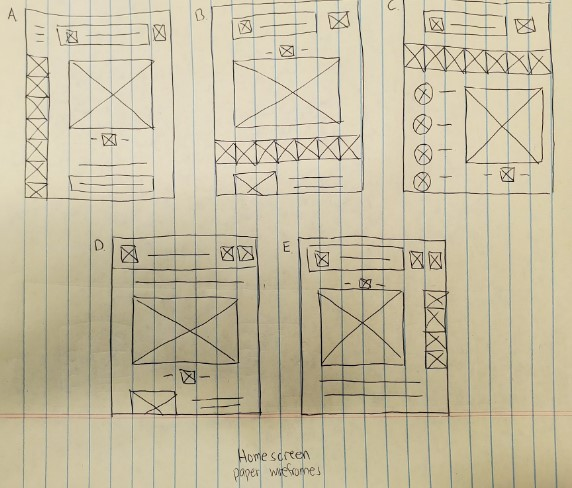 A
B
C
D.
E
Homescreen
paper wireframes